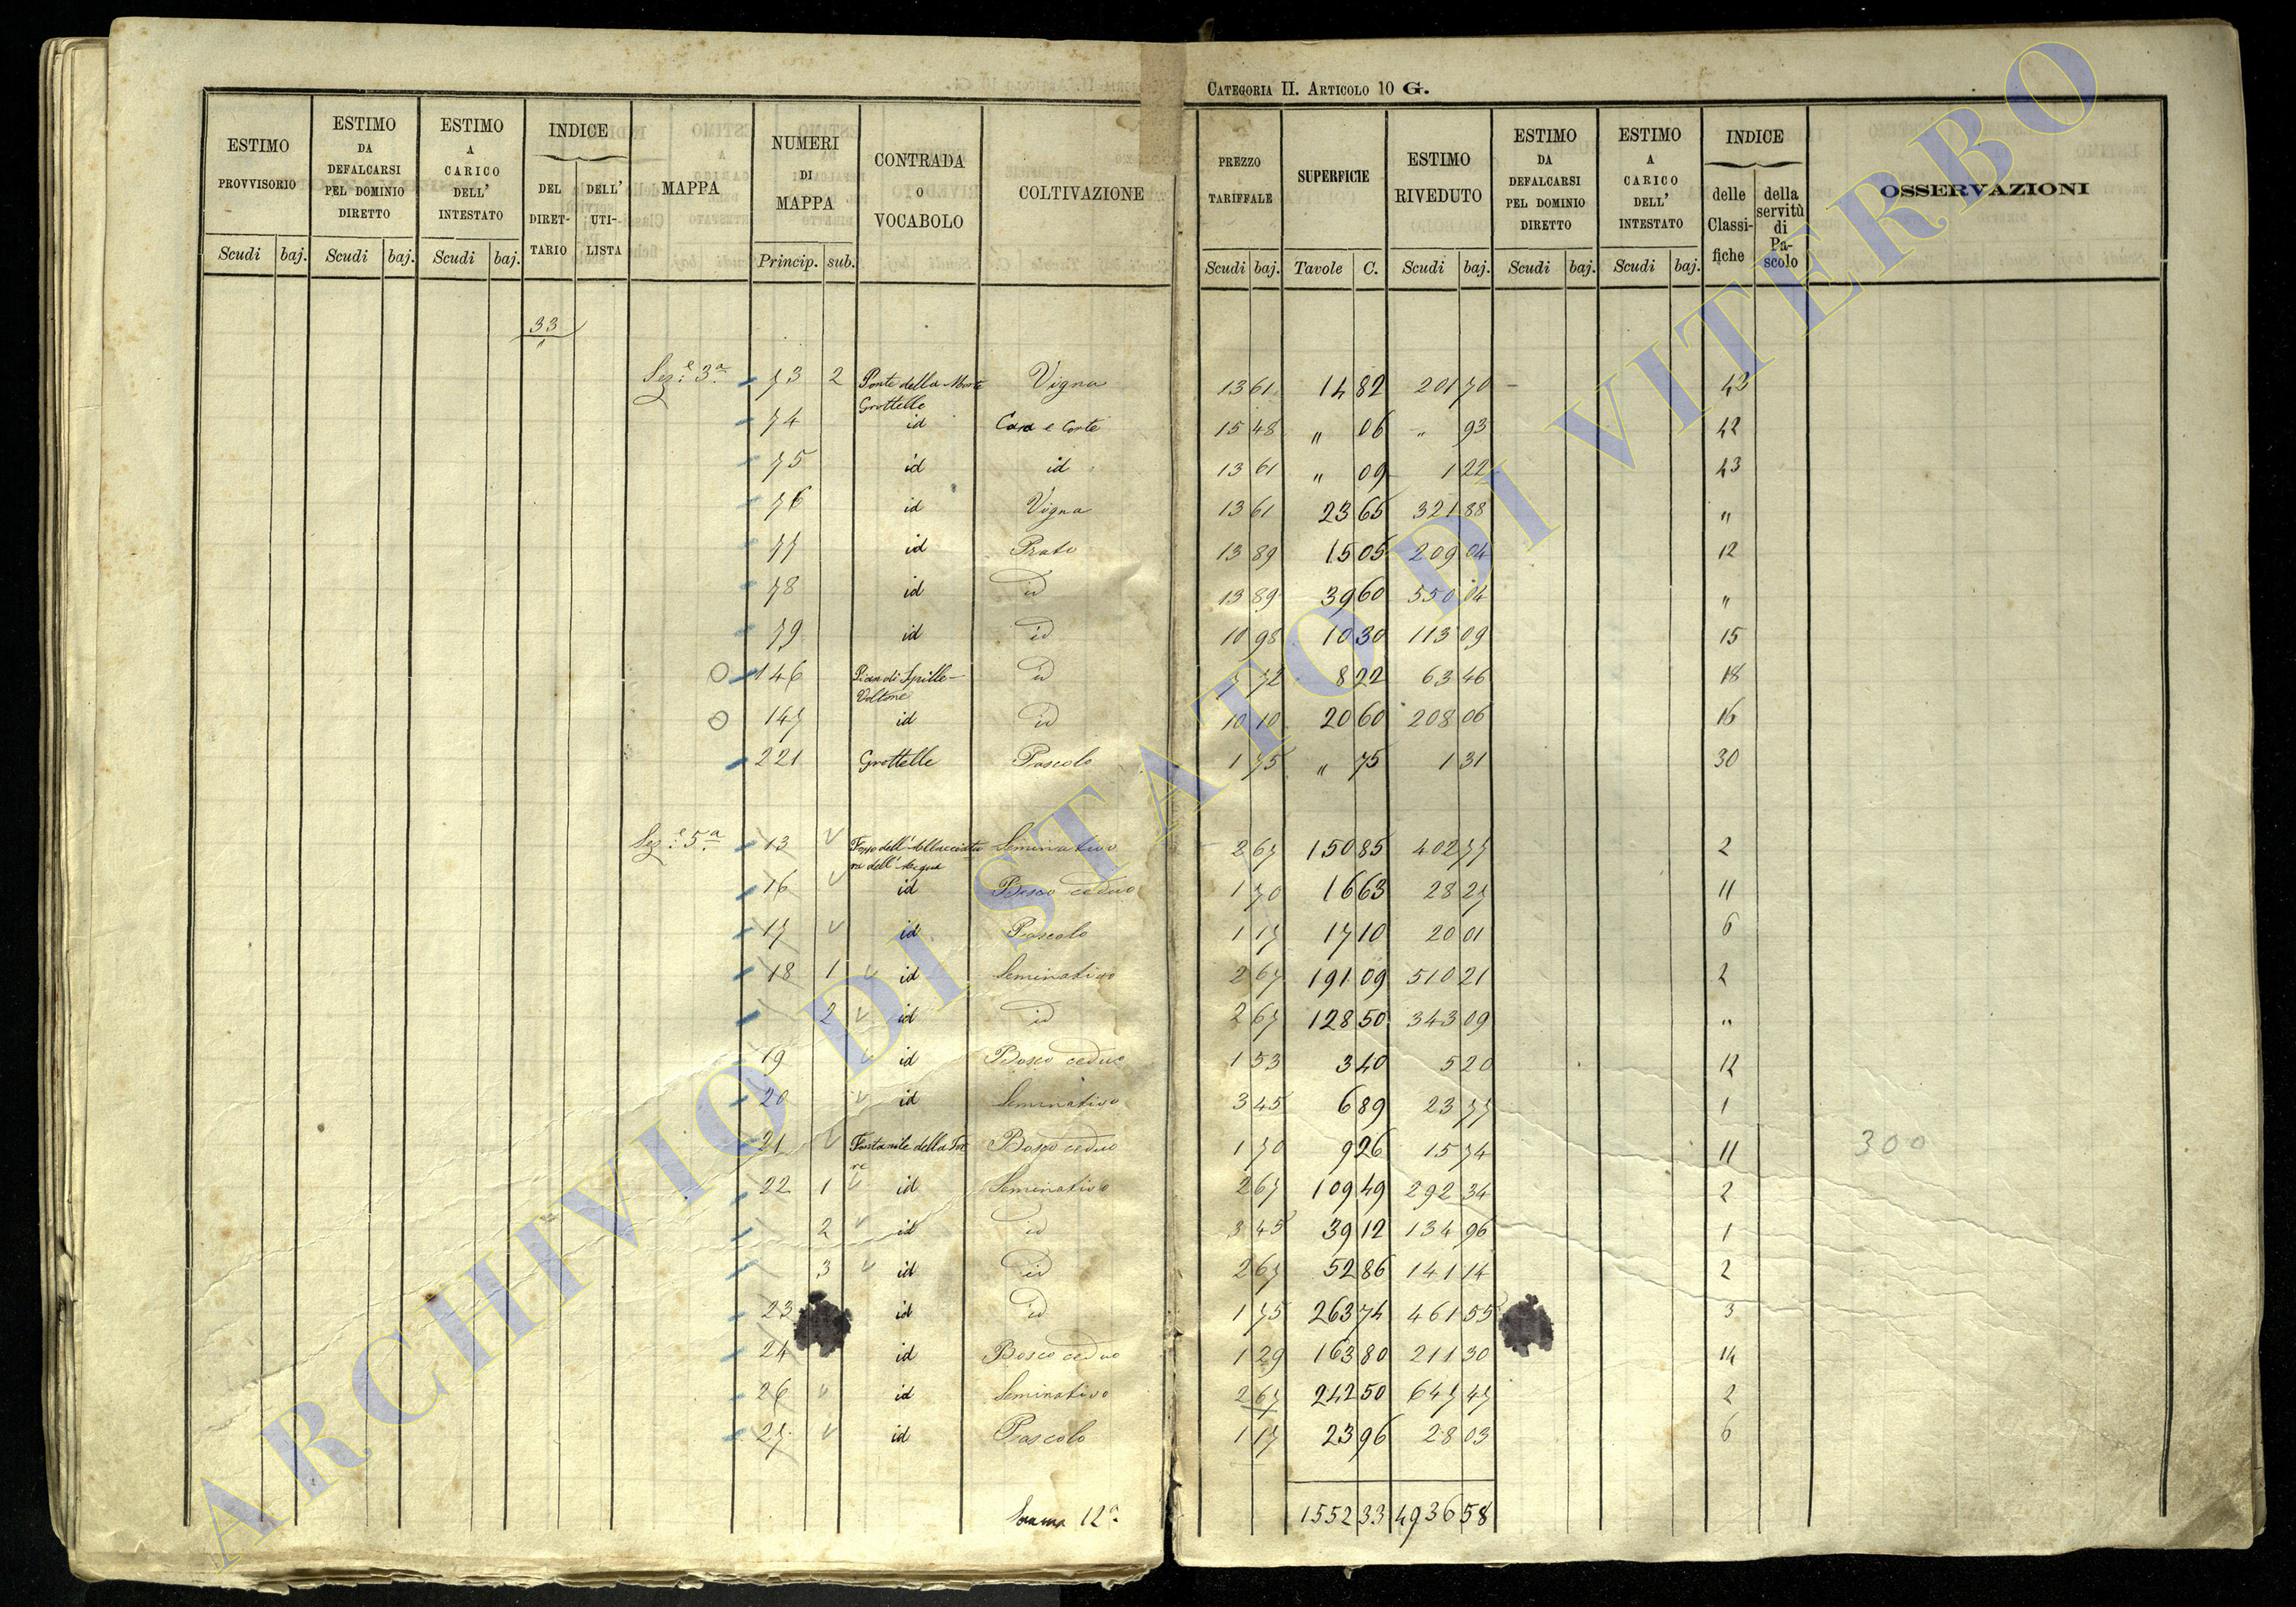 CATEGORIA II. ARTICOLO 10 G.
ESTIMO PROVVISORIO | ESTIMO DA DEFALCARSI PEL DOMINIO DIRETTO | ESTIMO A CARICO DELL' INTESTATO | INDICE | MAPPA | NUMERI DI MAPPA | CONTRADA O VOCABOLO | COLTIVAZIONE | PREZZO TARIFFALE | SUPERFICIE | ESTIMO RIVEDUTO | ESTIMO DA DEFALCARSI PEL DOMINIO DIRETTO | ESTIMO A CARICO DELL' INTESTATO | INDICE | OSSERVAZIONI
DEL DIRETTARIO | DELL' UTILISTA | delle Classifiche | della servitù di Pascolo
Scudi | baj. | Scudi | baj. | Scudi | baj. | Princip. | sub. | Scudi | baj. | Tavole | C. | Scudi | baj. | Scudi | baj. | Scudi | baj.
33
"
Sez.e 3a | 73 | 2 | Ponte della Morte Grottelle | Vigna | 13 61 | 14 82 | 201 70 | 43
74 | id | Casa e Corte | 15 48 | " 06 | " 93 | 42
75 | id | id | 13 61 | " 09 | 1 22 | 43
76 | id | Vigna | 13 61 | 23 65 | 321 88 | "
77 | id | Prato | 13 89 | 15 05 | 209 04 | 12
78 | id | id | 13 89 | 39 60 | 550 04 | "
79 | id | id | 10 98 | 10 30 | 113 09 | 15
146 | Pian di Spille - Voltone | id | 7 72 | 8 22 | 63 46 | 18
147 | id | id | 10 10 | 20 60 | 208 06 | 16
221 | Grottelle | Pascolo | 1 75 | " 75 | 1 31 | 30
Sez.e 5a | 13 | Fosso dell'Allacciatura dell'Acqua | Seminativo | 2 67 | 150 85 | 402 77 | 2
16 | id | Bosco ceduo | 1 70 | 16 63 | 28 27 | 11
17 | id | Pascolo | 1 17 | 17 10 | 20 01 | 6
18 | 1 | id | Seminativo | 2 67 | 191 09 | 510 21 | 2
2 | id | id | 2 67 | 128 50 | 343 09 | "
19 | id | Bosco ceduo | 1 53 | 3 40 | 5 20 | 12
20 | id | Seminativo | 3 45 | 6 89 | 23 77 | 1
21 | Fontanile della Torre | Bosco ceduo | 1 70 | 9 26 | 15 74 | 11 | 300
22 | 1 | id | Seminativo | 2 67 | 109 49 | 292 34 | 2
2 | id | id | 3 45 | 39 12 | 134 96 | 1
3 | id | id | 2 67 | 52 86 | 141 14 | 2
23 | id | id | 1 75 | 263 74 | 461 55 | 3
24 | id | Bosco ceduo | 1 29 | 163 80 | 211 30 | 14
26 | id | Seminativo | 2 67 | 242 50 | 647 47 | 2
27 | id | Pascolo | 1 17 | 23 96 | 28 03 | 6
Somma 12a | 1552 33 | 4936 58
ARCHIVIO DI STATO DI VITERBO